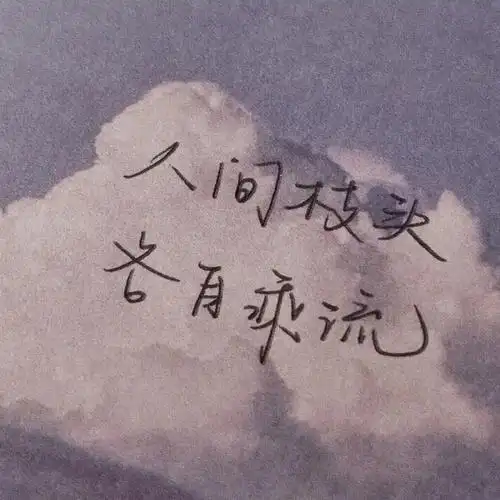 人间枝头
各自乘流